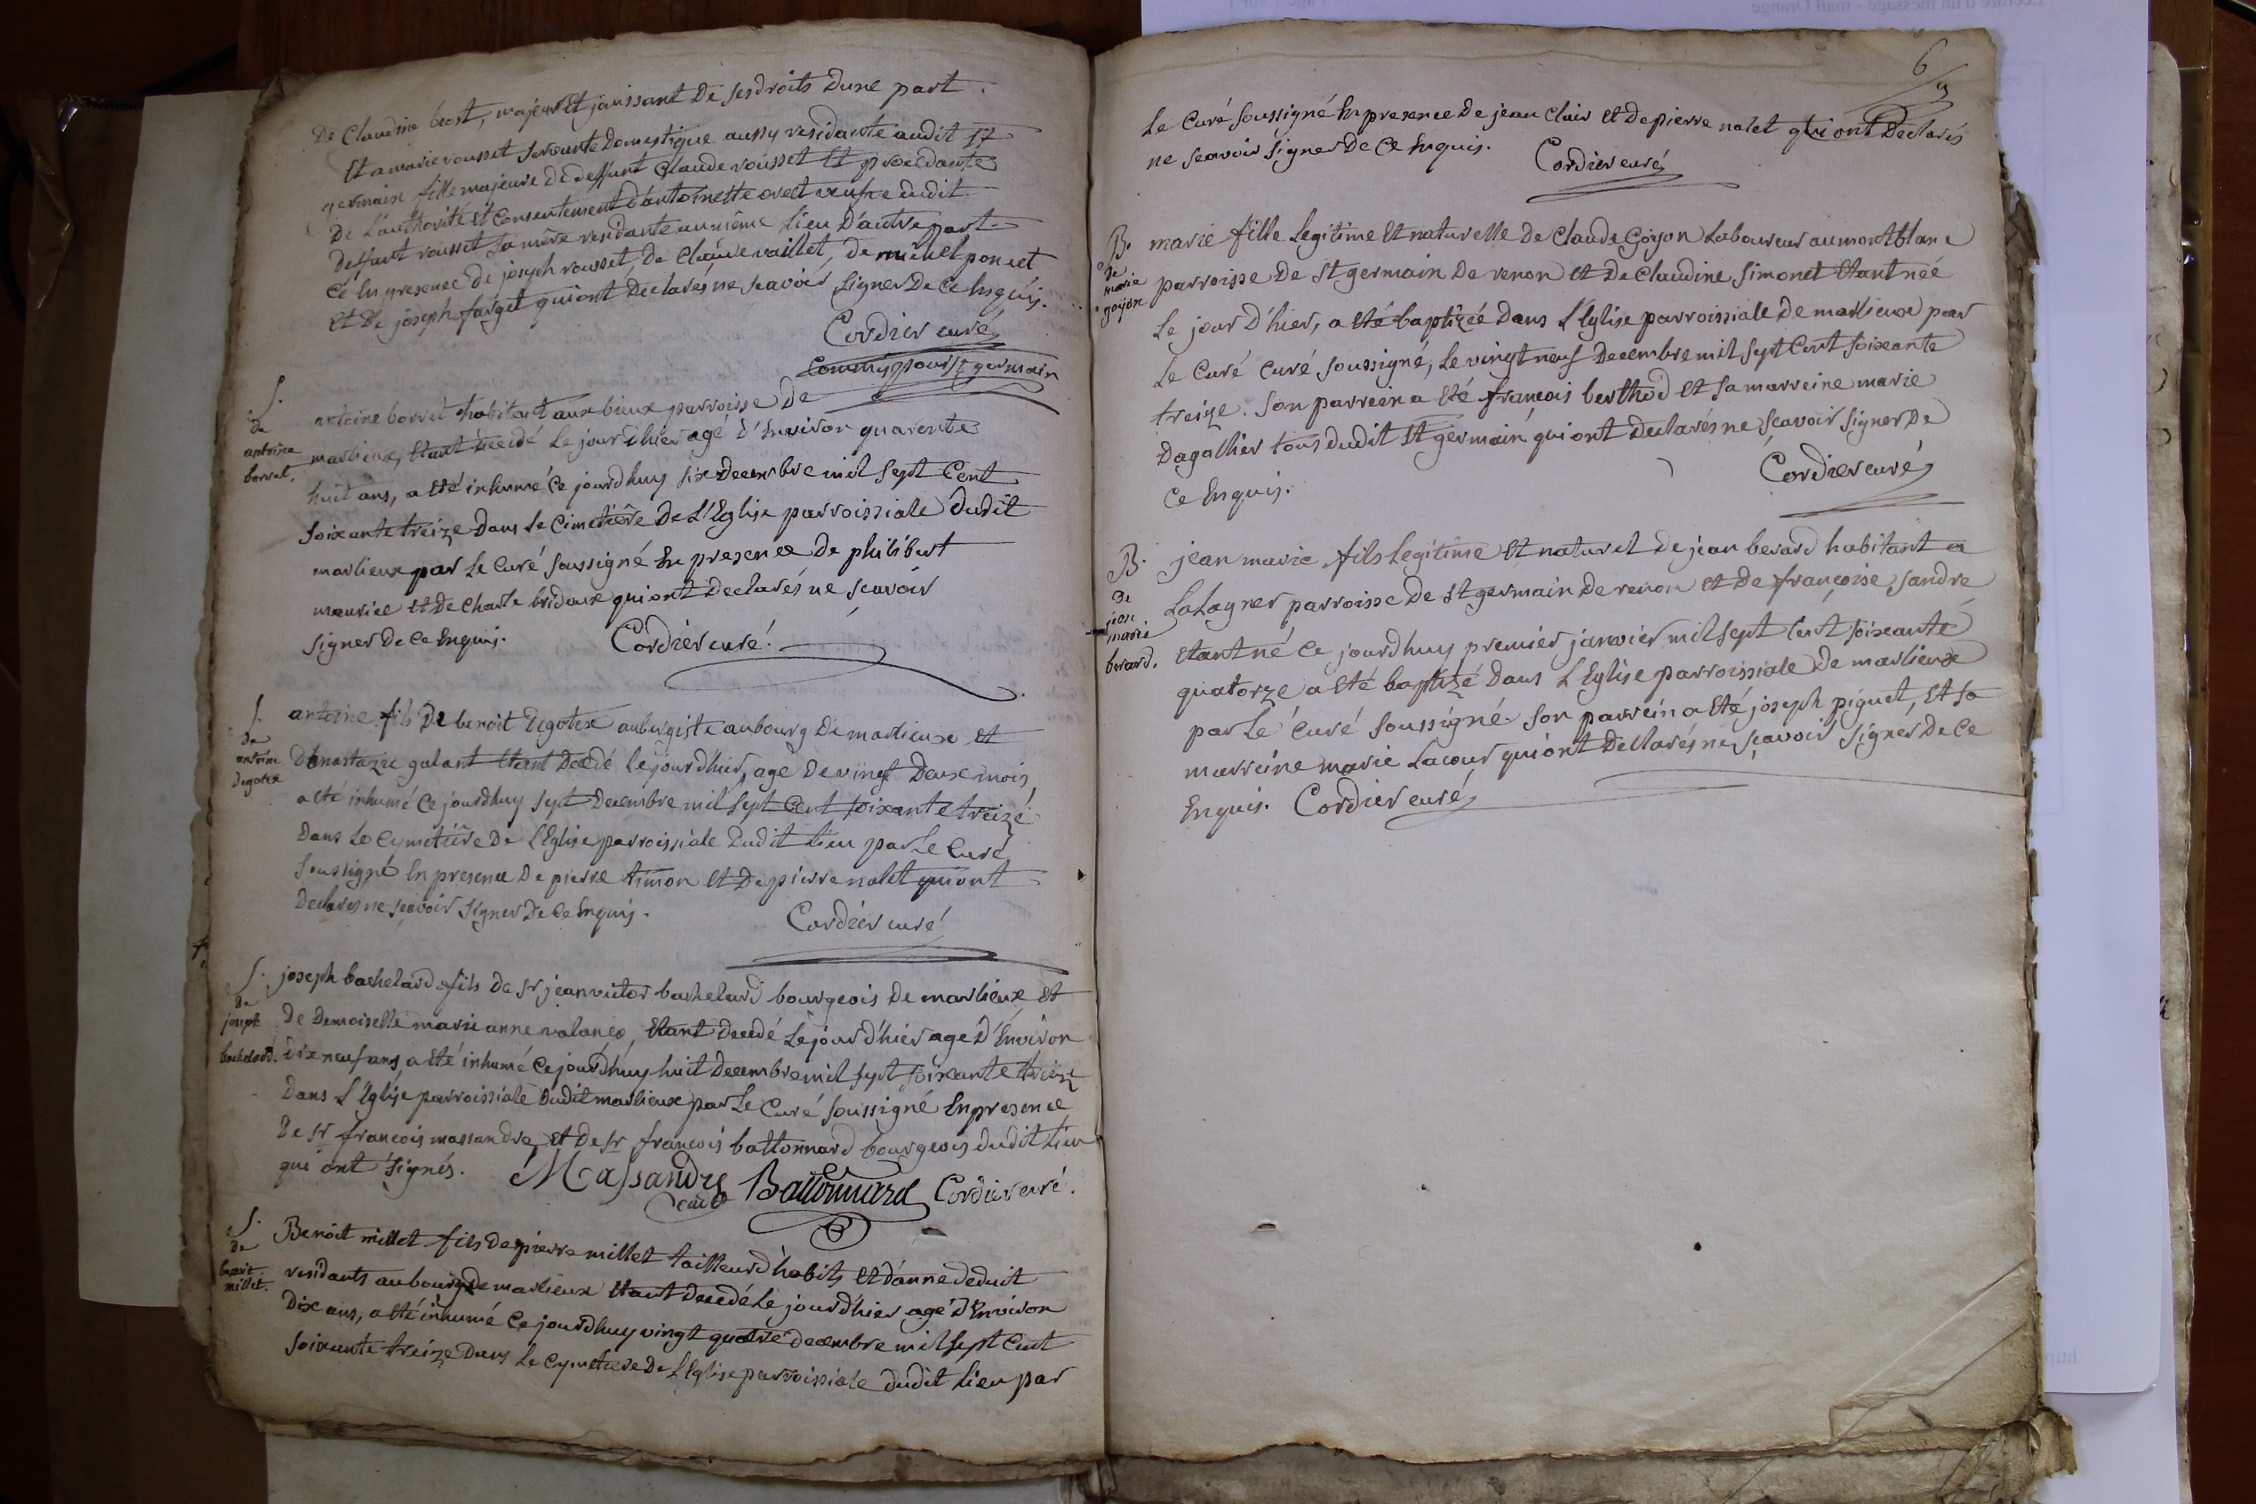 De Claudine brost, majeur Et jouissant De ses droits Dune part.
Et a marie rousset servante Domestique aussy residante audit St
germain fille majeure de deffunt Claude rousset Et procedante
De L'authorité Et Consentement d'antoinette veufve dudit
deffunt rousset Sa mère residante au même Lieu D'autre part
Ce En presence de joseph rousset, De Claude vaillet, de michel poncet
Et De joseph farget qui ont Declarés ne scavoir signer De Ce Enquis.
Cordier curé
Commis pour St germain
S.
de
antoine
borrel.
antoine borrel habitant aux bieux parroisse De
marlieux, Etant Decedé Le jour d'hier agé D'Environ quarente
huit ans, a Eté inhumé Ce jourdhuy six Decembre mil sept Cent
soixante treize Dans Le Cimetière De L'Eglise parroissiale Dudit
marlieux par Le Curé soussigné En presence De philibert
mauriee Et De Charle bridoux qui ont Declarés ne scavoir
signer De Ce Enquis. Cordier curé.
S.
De
antoine
Degotex
antoine fils De benoit Degotex aubergiste au bourg De marlieux et
D'anastazie galant Etant Decedé Le jour d'hier, age De vingt Deux mois
a Eté inhumé Ce jourdhuy sept Decembre mil sept Cent soixante treize
Dans Le Cymetière De L'Eglise parroissiale Dudit Lieu par Le Curé
Soussigné En presence De pierre timon Et De pierre nalet qui ont
Declarés ne scavoir signer De Ce Enquis.
Cordier curé
S.
De
joseph
bachelard.
joseph bachelard fils De Sr jean victor bachelard bourgeois De marlieux Et
De Demoiselle marie anne valanço, Etant Decedé Le jour d'hier agé D'Environ
Dix neuf ans, a Eté inhumé Ce jourdhuy huit Decembre mil sept soixante treize
Dans L'Eglise parroissiale Dudit marlieux par Le Curé soussigné En presence
De Sr francois massandre, Et De Sr francois battonnard bourgeois dudit Lieu
qui ont signés. Massandre Battonnard Cordier curé.
S.
de
benoit
millet.
Benoit millet fils De pierre millet tailleur d'habits Et d'anne deduit
residants au bourg De marlieux Etant Decedé Le jour d'hier agé D'Environ
Dix ans, a Eté inhumé Ce jourdhuy vingt quatre decembre mil sept Cent
soixante treize Dans Le Cymetiere De L'Eglise parroissiale dudit Lieu par
6
Le Curé soussigné En presence De jean Clair Et De pierre nalet qui ont Declarés
ne scavoir signer De Ce Enquis. Cordier curé
B.
de
marie
goyon
marie fille Legitime Et naturelle De Claude Goyon Laboureur au mont blanc
parroisse De St germain De renon Et De Claudine Simonet Etant née
Le jour D'hier, a Eté baptizée Dans L'Eglise parroissiale De marlieux par
Le Curé Curé soussigné, Le vingt neuf Decembre mil sept Cent soixante
treize. Son parrein a Eté françois berthod Et sa marreine marie
Dagallier tous dudit St germain qui ont Declarés ne scavoir signer De
Ce Enquis. Cordier curé
B.
de
jean
marie
berard.
jean marie fils Legitime Et naturel De jean berard habitant a
La Layner parroisse De St germain De renon Et De françoise Sandre
Etant né Ce jourdhuy premier janvier mil sept Cent soixante
quatorze a Eté baptizé Dans L'Eglise parroissiale De marlieux
par Le Curé Soussigné. Son parrein a Eté joseph piguet, Et sa
marreine marie Lacour qui ont Declarés ne scavoir signer De Ce
Enquis. Cordier curé